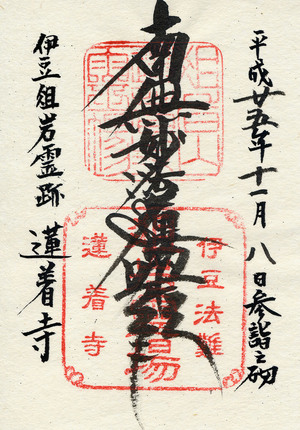 平成廿五年十一月八日参詣之砌
南無妙法蓮華経
伊豆法難
蓮着寺
伊豆俎岩霊跡
蓮着寺